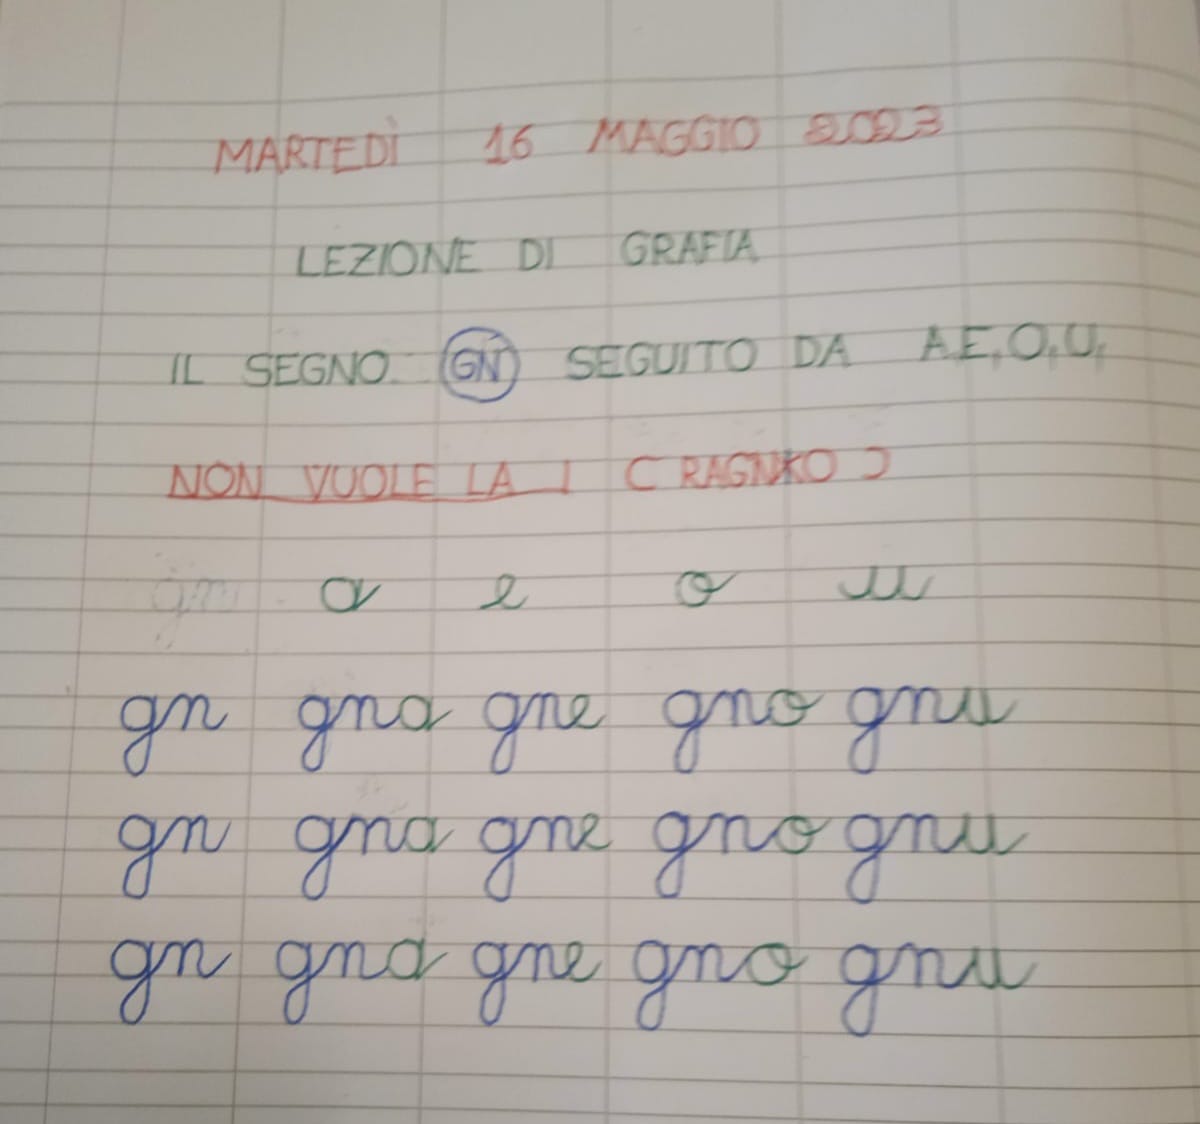 MARTEDÌ 16 MAGGIO 2023
LEZIONE DI GRAFIA
IL SEGNO GN SEGUITO DA A,E,O,U,
NON VUOLE LA I (RAGNIO)
gn a e o u
gn gna gne gno gnu
gn gna gne gno gnu
gn gna gne gno gnu